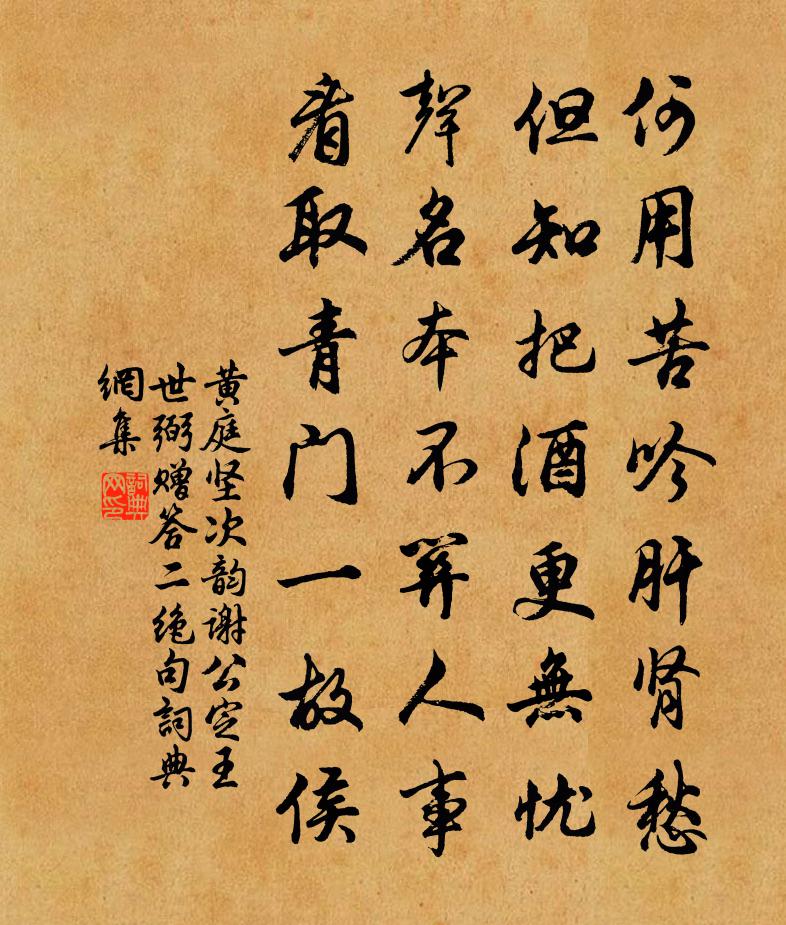 何用苦吟肝肾愁
但知把酒更無忧
聲名本不關人事
看取青门一故侯
黄庭坚次韵谢公定王
世弼赠答二絶句詞典
網集
詞典
网印